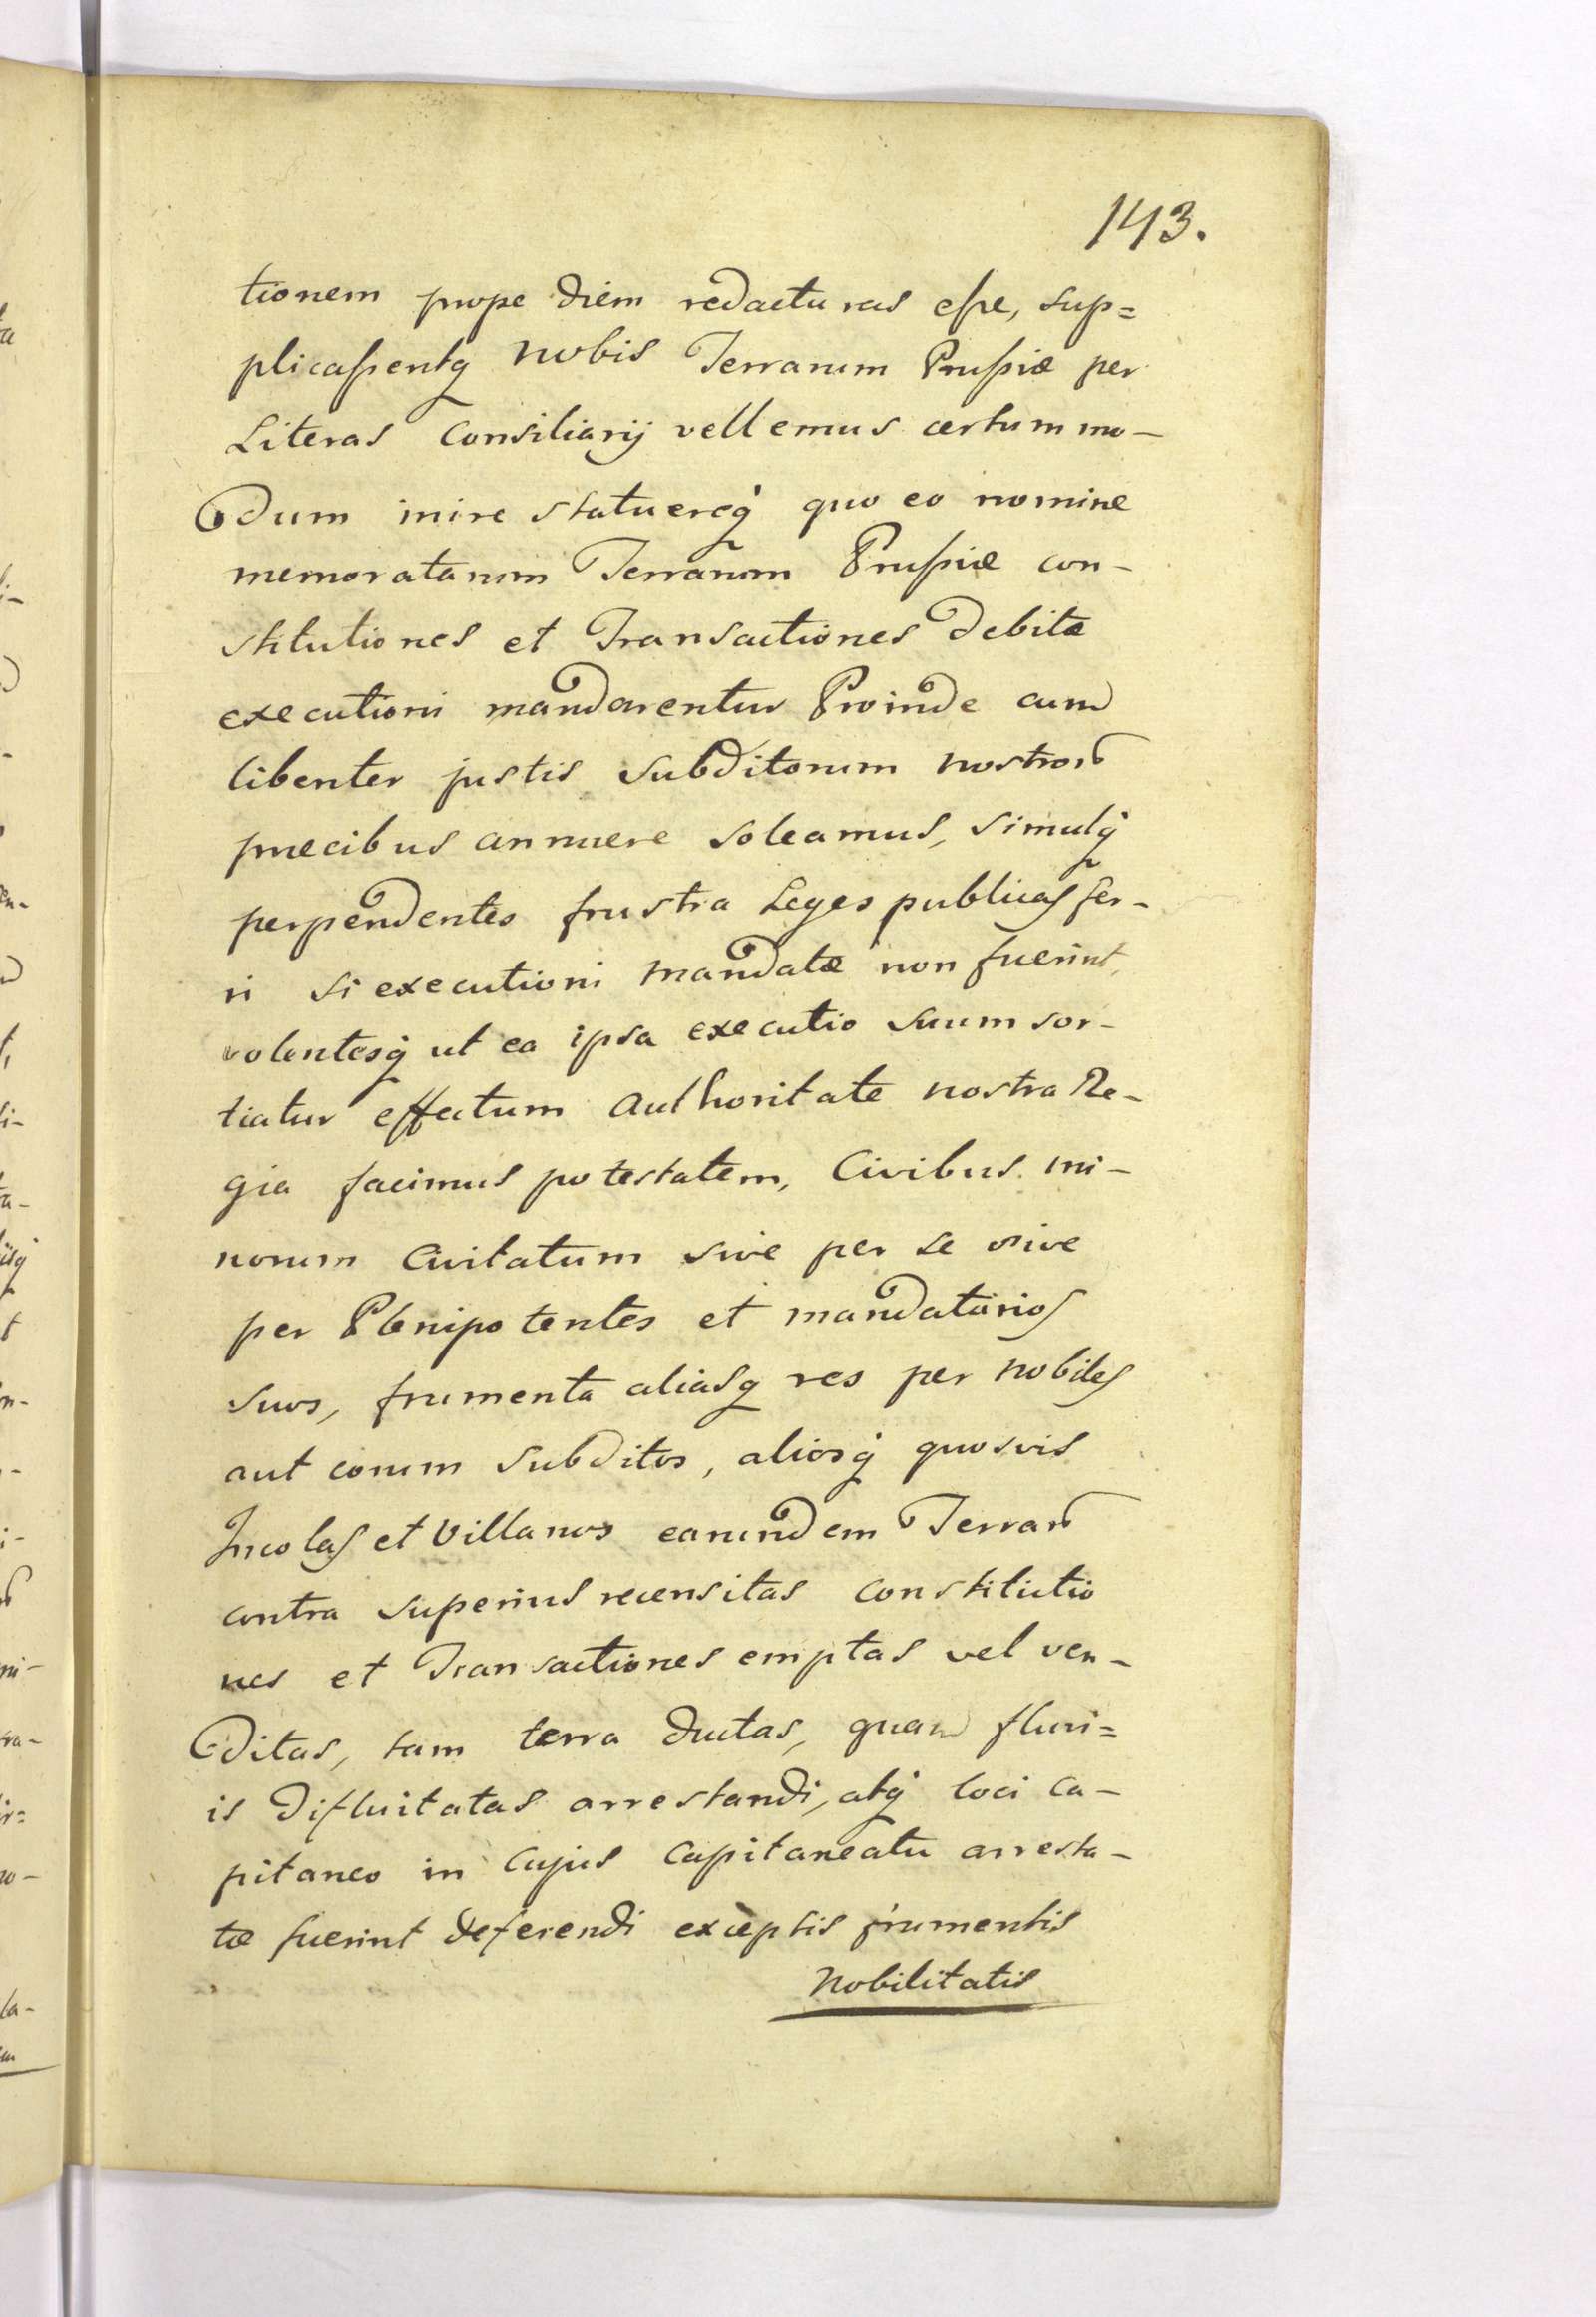 143.
tionem prope diem redacturas esse, sup=
plicassentq nobis Terrarum Prussiæ per
Literas Consiliarij vellemus certum mo-
dum inire statuereq quo eo nomine
memoratarum Terrarum Prussiæ con-
stitutiones et Transactiones debitæ
executioni mandarentur Proinde cum
libenter justis subditorum nostror
precibus annuere soleamus, simulq
perpendentes frustra Leges publicas fer-
ri si executioni mandatæ non fuerint,
volentesq ut ea ipsa executio suum sor-
tiatur effectum authoritate nostra Re-
gia facimus potestatem, Civibus mi-
norum Civitatum sive per se sive
per Plenipotentes et mandatarios
suos, frumenta aliasq res per nobiles
aut eorum subditos, aliosq quosvis
Incolas et Villanos earundem Terrar
contra superius recensitas constitutio
nes et Transactiones emptas vel ven-
ditas, tam terra ductas, quam fluvi=
is difluitatas arrestandi, atq loci ca-
pitaneo in cujus Capitaneatu arresta-
tæ fuerint deferendi exceptis frumentis
Nobilitatis